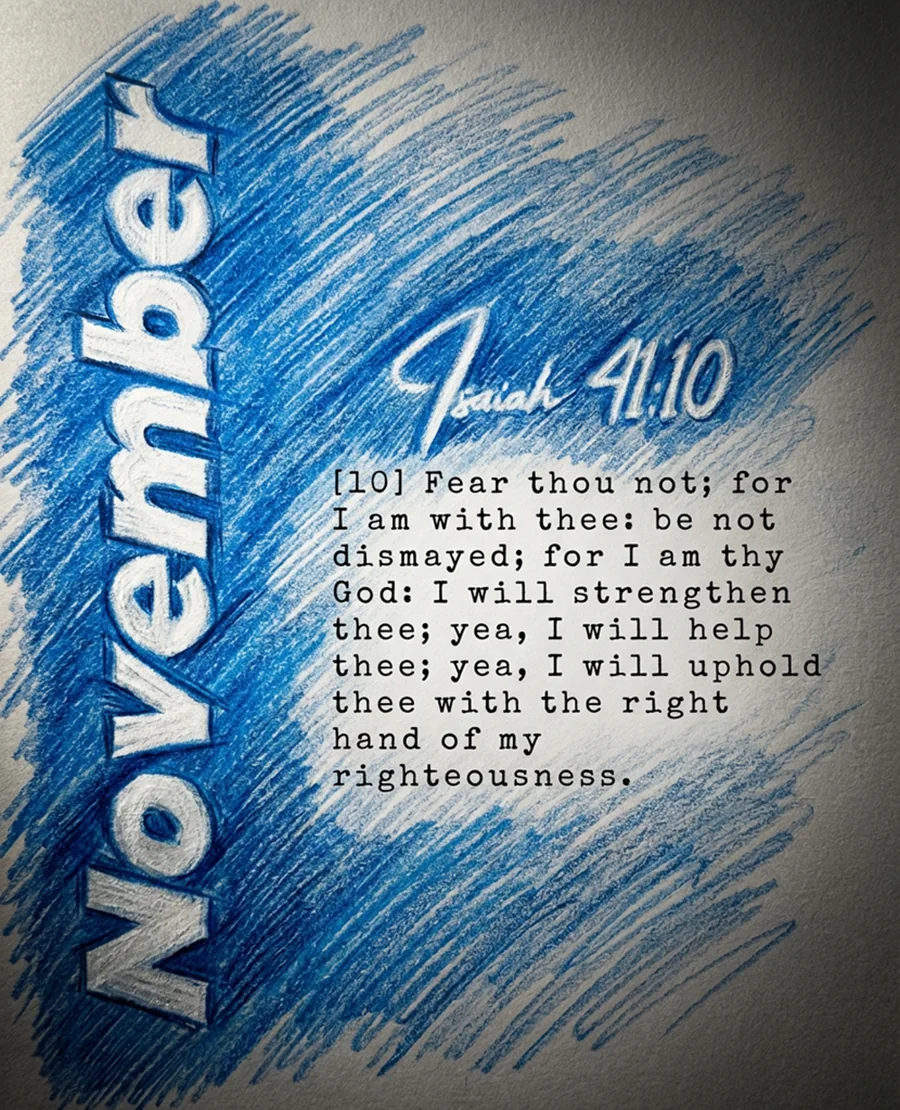 November
Isaiah 41:10
[10] Fear thou not; for
I am with thee: be not
dismayed; for I am thy
God: I will strengthen
thee; yea, I will help
thee; yea, I will uphold
thee with the right
hand of my
righteousness.